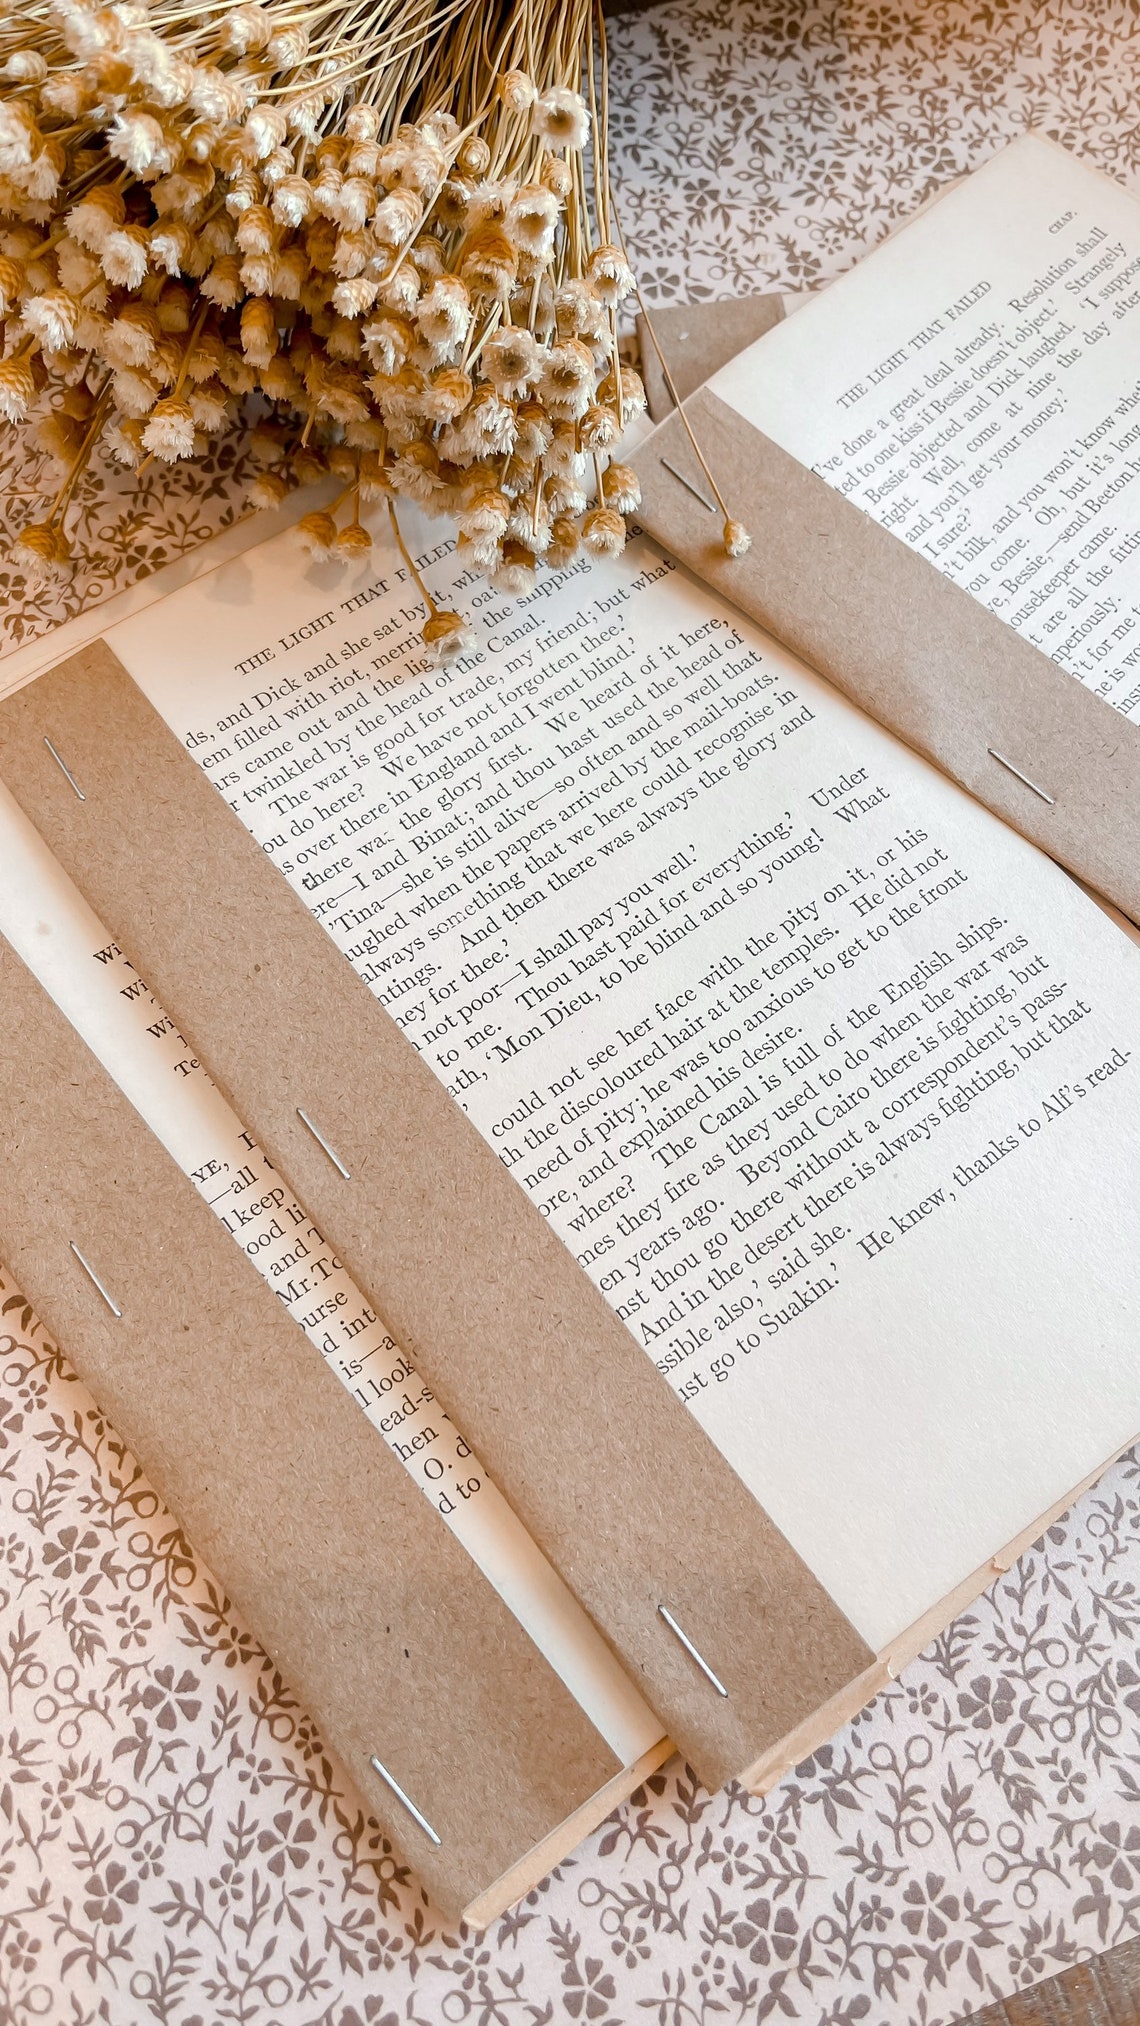 THE LIGHT THAT FAILED
ds, and Dick and she sat by it,
em filled with riot,
ars came out and the
r twinkled by the head of the Canal. the shipping
The war is good for trade, my friend; but what
ou do here? We have not forgotten thee.'
s over there in England and I went blind.'
there was the glory first. We heard of it here,
ere—I and Binat; and thou hast used the head of
'Tina—she is still alive—so often and so well that
aughed when the papers arrived by the mail-boats.
always something that we here could recognise in
ntings. And then there was always the glory and
ney for thee.'
not poor—I shall pay you well.'
to me. Thou hast paid for everything.' Under
ath, 'Mon Dieu, to be blind and so young! What
could not see her face with the pity on it, or his
th the discoloured hair at the temples. He did not
need of pity; he was too anxious to get to the front
ore, and explained his desire.
where? The Canal is full of the English ships.
mes they fire as they used to do when the war was
en years ago. Beyond Cairo there is fighting, but
nst thou go there without a correspondent's pass-
And in the desert there is always fighting, but that
ssible also,' said she.
ust go to Suakin.' He knew, thanks to Alf's read-
THE LIGHT THAT FAILED CHAP.
I've done a great deal already. Resolution shall
ted to one kiss if Bessie doesn't object.' Strangely
Bessie objected and Dick laughed. 'I suppose
right. Well, come at nine the day after
and you'll get your money.'
I sure?'
n't bilk, and you won't know
you come. Oh, but it's long
ve, Bessie,—send Beeton
ousekeeper came.
t are all the
mperiously.
n't for me
Wi
Wi
Wi
Te
YE,
—all
l keep
ood li
and T
Mr. To
ourse
d into
is—a
l look
ead-s
hen
O. d
d to